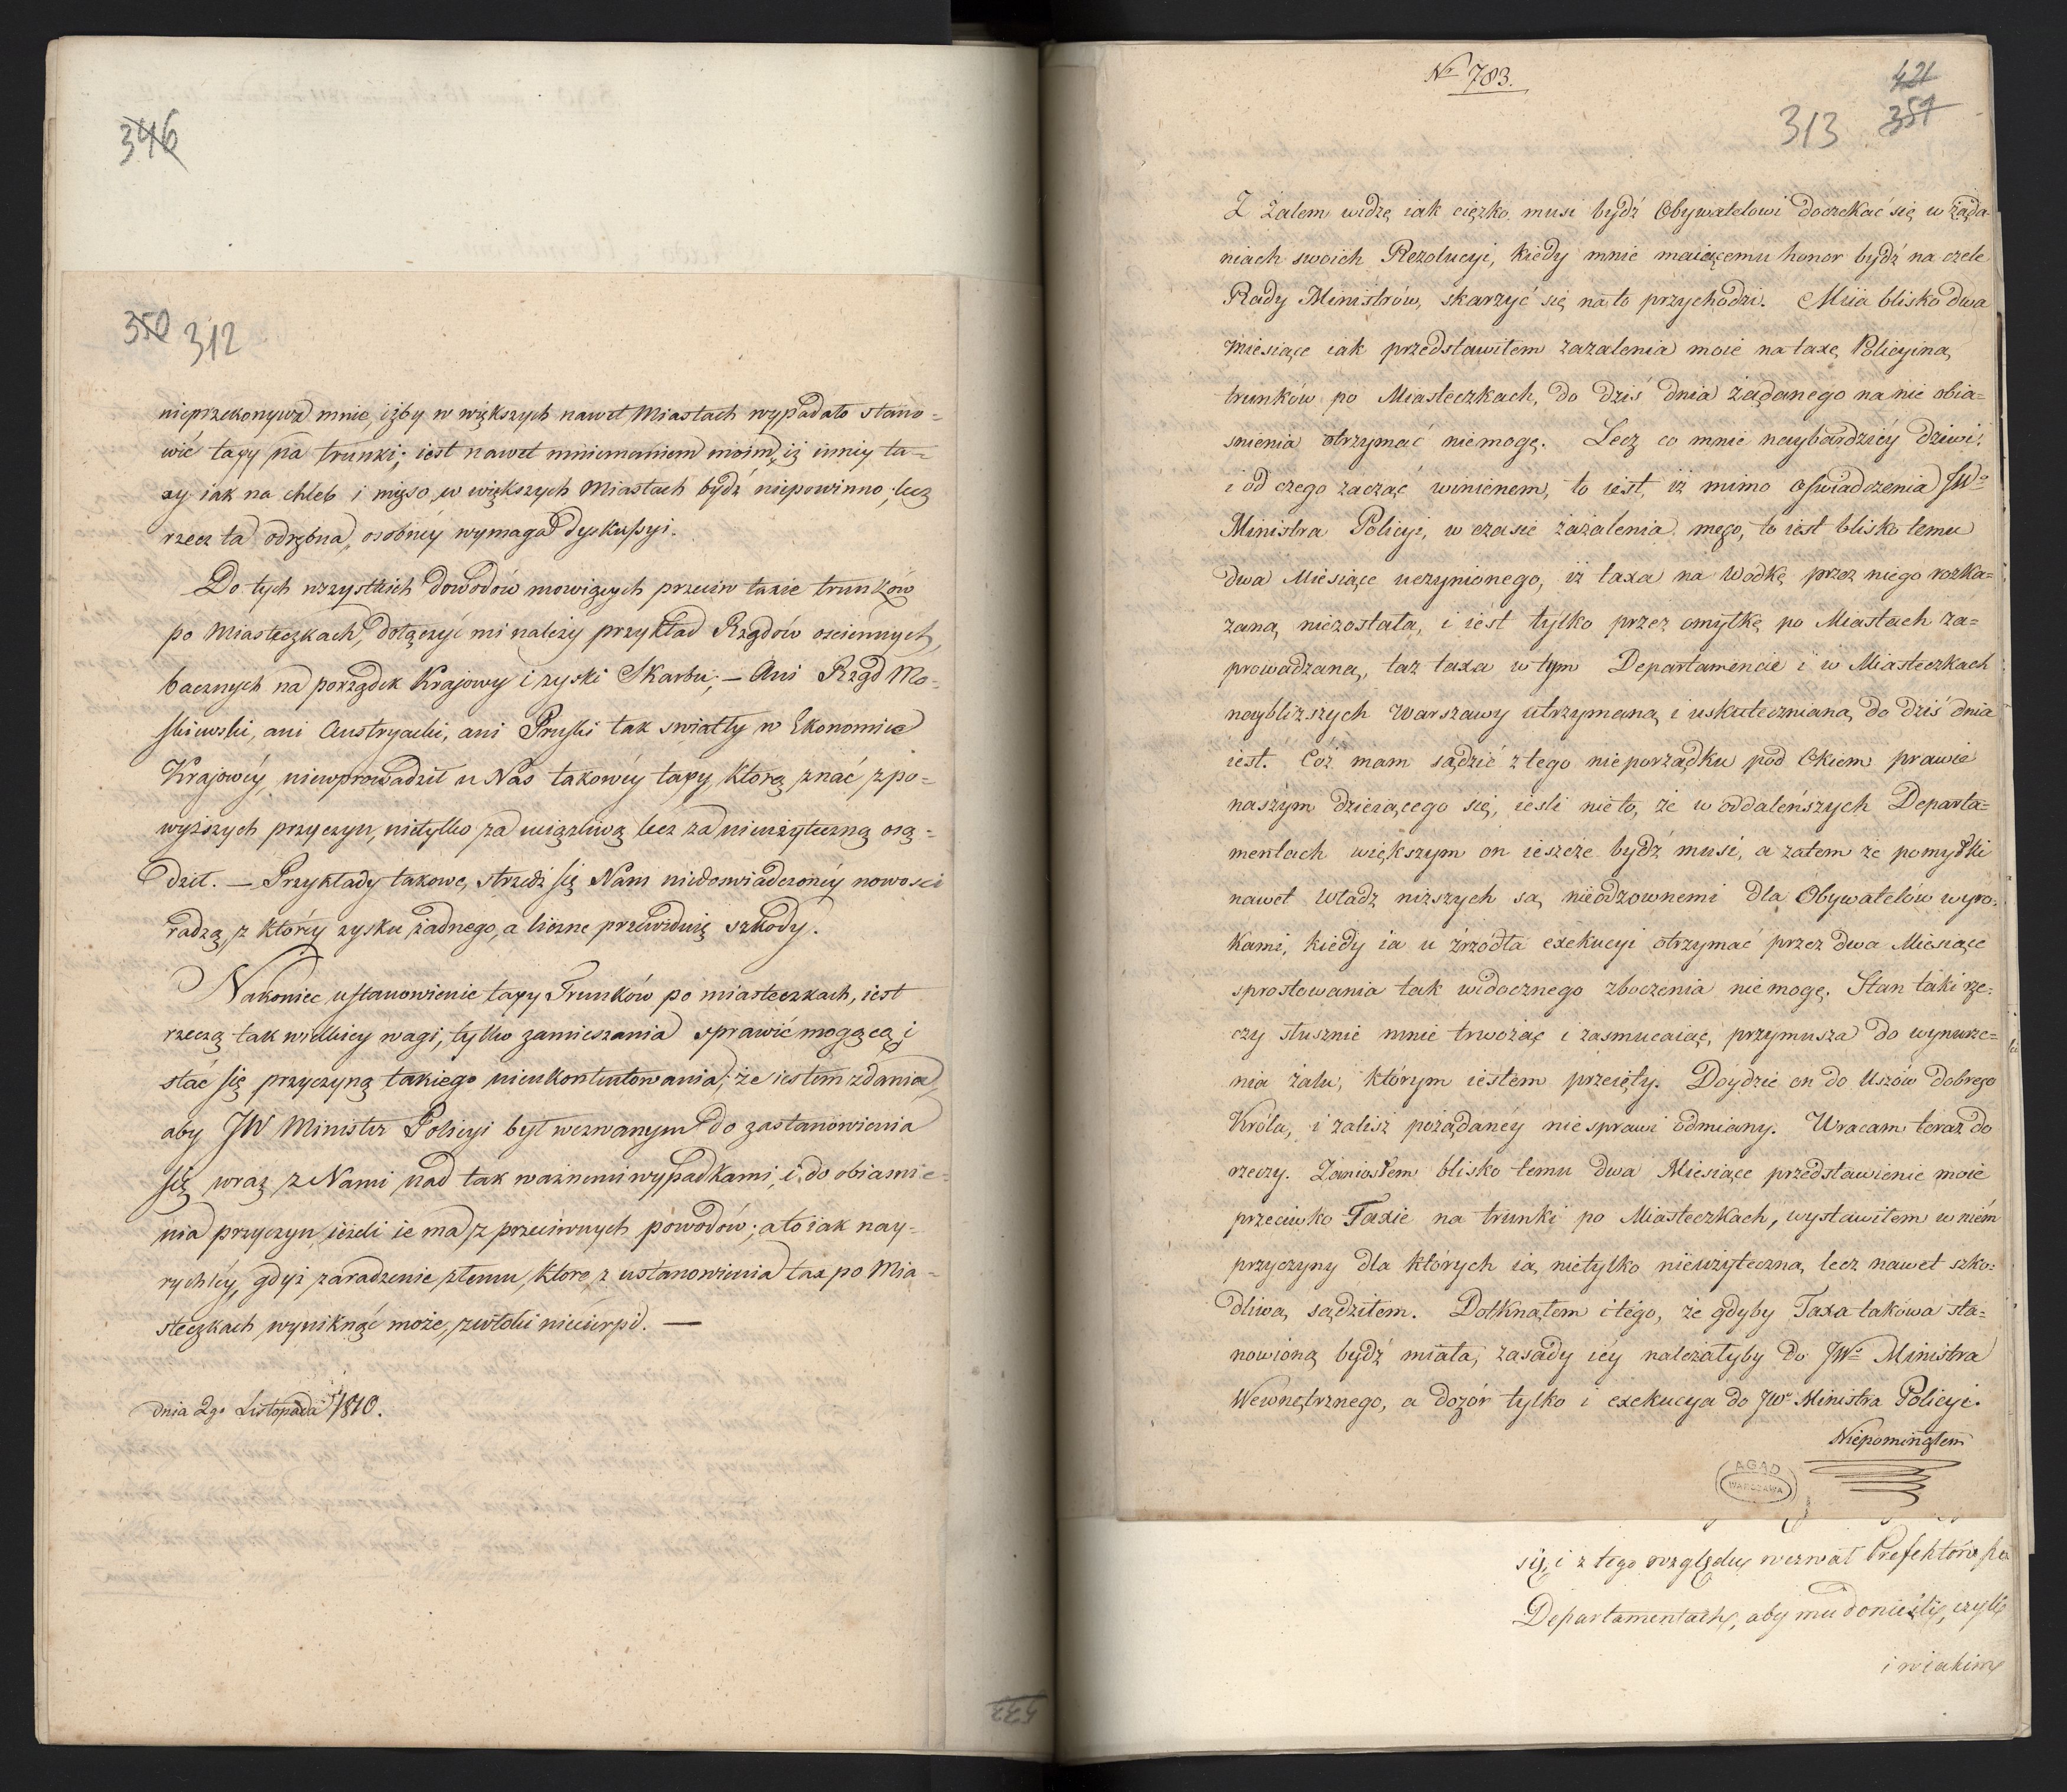 346
350 312
nieprzekonywa mnie, iżby w większych nawet Miastach wypadało stano=
wić taxy na trunki; iest nawet mniemaniem moim, iż inney ta=
xy iak na chleb i mięso, w większych Miastach bydź niepowinno; lecz
rzecz ta odrębna, osobney wymaga dyskussyi.
Do tych wszystkich dowodów mowiących przeciw taxie trunków
po Miasteczkach, dołączyć mi należy przykład Rządów ościennych,
bacznych na porządek Krajowy i zyski Skarbu; — Ani Rząd Mo=
skiewski, ani Austryacki, ani Pruski tak swiatły w Ekonomice
Krajowéy, niewprowadził u Nas takowéy taxy, którą znać z po=
wyższych przyczyn, nietylko za uciążliwą lecz za nieużyteczną osą=
dził. — Przykłady takowe, strzedz się Nam niedoswiadczonéy nowosci
radzą, z któréy zysku żadnego, a liczne przewiduię szkody.
Nakoniec ustanowienie taxy Trunków po miasteczkach, iest
rzeczą tak wielkiey wagi, tylko zamieszania sprawić mogącą i
stać się przyczyną takiego nieukontentowania; że iestem zdania,
aby JW Minister Policyi był wezwanym do zastanowienia
się wraz z Nami nad tak ważnemi wypadkami, i do obiasnie=
nia przyczyn ieżeli ie ma, z przeciwnych powodów; a to iak nay=
rychléy, gdyż zaradzenie złemu, które z ustanowienia tax po Mia=
steczkach wyniknąć może, zwłoki niecierpi. —
dnia 2go Listopada 1810.
532
Nr 783.
421
313 351
Z żalem widzę iak ciężko musi bydź Obywatelowi doczekać się w żąda=
niach swoich Rezolucyi, kiedy mnie maiącemu honor bydź na czele
Rady Ministrów, skarzyć się na to przychodzi. Miia blisko dwa
Miesiące iak przedstawiłem zażalenia moie na taxę Policyiną
trunków po Miasteczkach, do dziś dnia żądanego na nie obia=
snienia otrzymać niemogę. Lecz co mnie naybardziéy dziwi,
i od czego zacząć winienem, to iest, iż mimo oswiadczenia JWo
Ministra Policyi, w czasie zażalenia mego, to iest blisko temu
dwa Miesiące uczynionego, iż taxa na Wodkę przez niego rozka=
zaną niezostała, i iest tylko przez omyłkę po Miastach za=
prowadzana, taż taxa w tym Departamencie i w Miasteczkach
naybliższych Warszawy utrzymaną i uskutecznianą do dziś dnia
iest. Cóż mam sądzić z tego nieporządku pod Okiem prawie
naszym dzieiącego się, iesli nie to, że w oddaleńszych Departa=
mentach większym on ieszcze bydź musi, a zatem że pomyłki
nawet Władz niższych są nieodzownemi dla Obywatelów wyro=
kami, kiedy ia u źrzódła exekucyi otrzymać przez dwa Miesiące
sprostowania tak widocznego zboczenia niemogę. Stan taki rze=
czy słusznie mnie trwożąc i zasmucaiąc, przymusza do wynurze=
nia żalu, którym iestem przeięty. Doydzie on do Uszów dobrego
Króla, i zaliż pożądanéy niesprawi odmiany. Wracam teraz do
rzeczy. Zaniosłem blisko temu dwa Miesiące przedstawienie moie
przeciwko Taxie na trunki po Miasteczkach, wystawiłem w niém
przyczyny dla których ią nietylko nieużyteczną, lecz nawet szko=
dliwą sądziłem. Dotknąłem i tego, że gdyby Taxa takowa sta=
nowioną bydź miała, zasady iéy należałyby do JWo Ministra
Wewnętrznego, a dozór tylko i exekucya do JWo Ministra Policyi.
Niepominąłem
AGAD
WARSZAWA
się, i z tego względu wezwał Prefektów po
Departamentach, aby mu donieśli, czyli
i w iakim